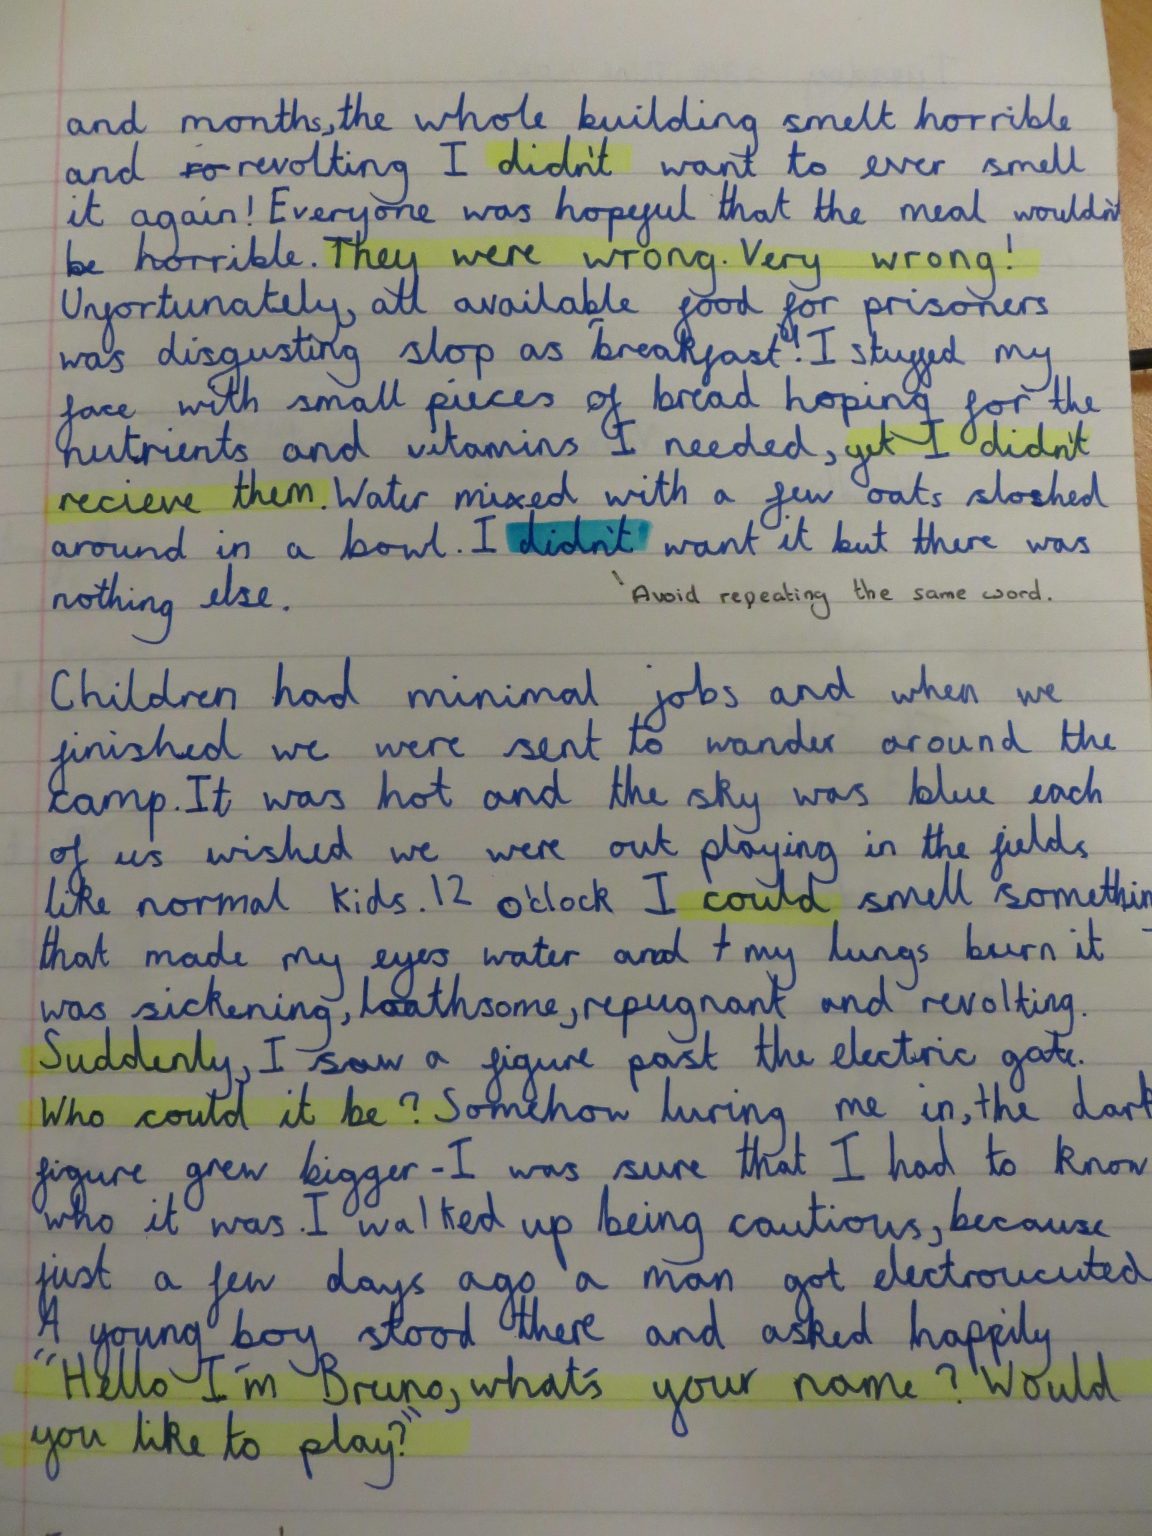 and months, the whole building smelt horrible
and so revolting I didn't want to ever smell
it again! Everyone was hopeful that the meal wouldn't
be horrible. They were wrong. Very wrong!
Unfortunately, all available food for prisoners
was disgusting slop as "breakfast"! I stuffed my
face with small pieces of bread hoping for the
nutrients and vitamins I needed, yet I didn't
recieve them. Water mixed with a few oats sloshed
around in a bowl. I didn't want it but there was
nothing else.
Avoid repeating the same word.
Children had minimal jobs and when we
finished we were sent to wander around the
camp. It was hot and the sky was blue each
of us wished we were out playing in the fields
like normal kids. 12 o'clock I could smell somethin
that made my eyes water and my lungs burn it
was sickening, loathsome, repugnant and revolting.
Suddenly, I saw a figure past the electric gate.
Who could it be? Somehow luring me in, the dark
figure grew bigger - I was sure that I had to know
who it was. I walked up being cautious, because
just a few days ago a man got electroucuted
A young boy stood there and asked happily
"Hello I'm Bruno, what's your name? Would
you like to play?"